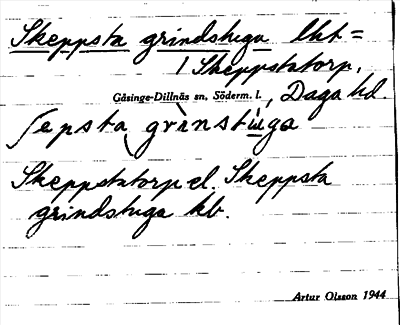 Skeppsta grindstuga lht =
/ Skeppstatorp,
Gåsinge-Dillnäs sn, Söderm. l., Daga hd.
ʃepsta grìnstu̇ga
Skeppstatorp el. Skeppsta
grindstuga kb.
Artur Olsson 1944